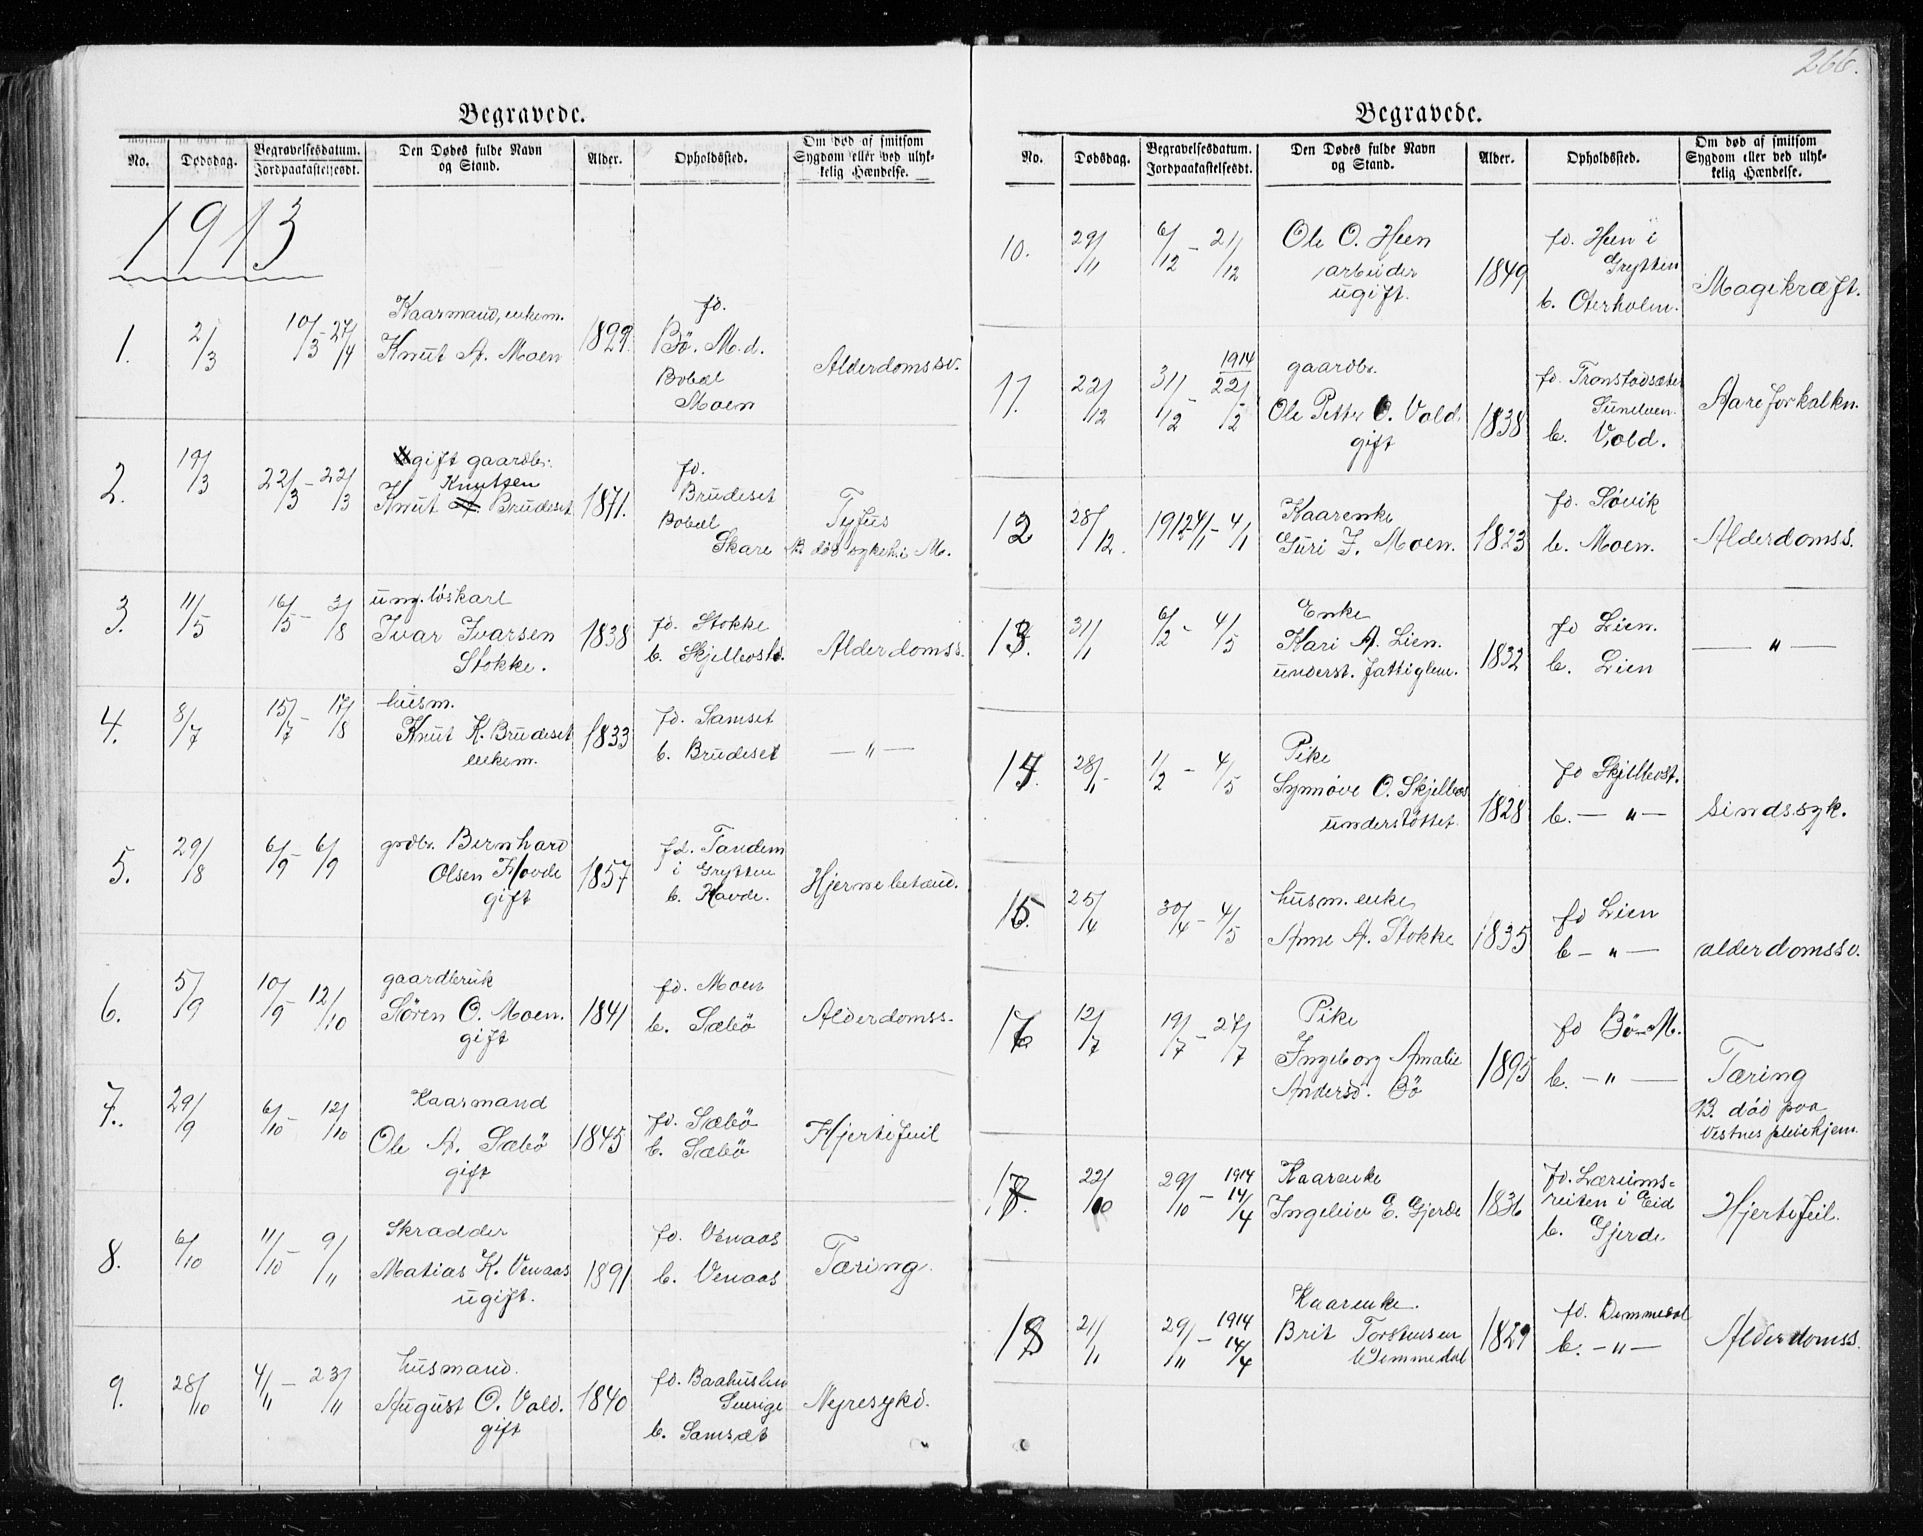 266.
Begravede.
No. Dødsdag. Begravelsesdatum. Jordpaakastelsesdt. Den Dødes fulde Navn og Stand. Alder. Opholdssted. Om død af smitsom Sygdom eller ved ulykkelig Hændelse.
1913
1. 2/3 10/3 - 27/4 Kaarmand, enkem.
Knut A. Moen 1829. fd.
Bö. M.d.
Bobæl
Moen Alderdomssv.
2. 19/3 22/3 - 22/3 gift gaardbr.
Knutsen
Knut Brudeset 1871. fd.
Brudeset
Bobæl
Skare Tyfus
3. 11/5 16/5 - 3/8 ung. löskarl
Ivar Ivarsen
Stokke. 1838 fd. Stokke
b. Skjelbosta. Alderdomss.
4. 8/7 15/7 - 17/8 husm.
Knut K. Brudeset
enkem. 1833 fd. Samset
b. Brudeset — " —
5. 29/8 6/9 - 6/9 grdbr. Bernhard
Olsen Hovde
gift 1857 fd. Tandem
i Grytten
b. Hovde. Hjernebetænd.
6. 5/9 10/9 - 12/10 gaardbruk
Sören O. Moen.
gift 1841 fd. Moen
b. Sæbö Alderdomss.
7. 29/9 6/10 - 12/10 Kaarmand
Ole A. Sæbö
gift 1845 fd. Sæbö
b. Sæbö Hjertefeil
8. 6/10 11/10 - 9/11 Skrædder
Matias K. Venaas
ugift. 1891 fd. Venaas
b. Venaas Tæring.
9. 28/10 4/11 - 23/11 husmand.
August O. Vold.
gift 1840 fd. Baahuslen
Sverige
b. Samsæt Nyresykd.
Begravede.
No. Dødsdag. Begravelsesdatum. Jordpaakastelsesdt. Den Dødes fulde Navn og Stand. Alder. Opholdssted. Om død af smitsom Sygdom eller ved ulykkelig Hændelse.
10. 29/11 6/12 - 21/12 Ole O. Heen
arbeider
ugift. 1849 fd. Heen i
Grytten
b. Oterholm. Magekræft.
11. 22/12 31/12 - 1914 22/2 gaardbr.
Ole Petter O. Vold.
gift 1838 fd. Tronstadsæter
Sunelven.
b. Vold. Aareforkalkn.
12 28/12. 1912 4/1 - 4/1 Kaarenke
Guri J. Moen. 1823 fd. Sövik
b. Moen. Alderdomss.
13. 31/1 6/2 - 4/5 Enke
Kari A. Lien.
underst. fattiglem. 1832 fd Lien.
b. Lien — " —
14. 28/1 1/2 - 4/5 Pike
Synnöve O. Skjelbos
understöttet 1828 fd Skjelbost.
b. — " — Sindssyk.
15. 25/4 30/4 - 4/5 husm. enke
Anne A. Stokke 1835 fd Lien
b — " — alderdomssv.
16 12/7 19/7 - 27/7 Pike
Ingeborg Amalie
Andersd. Bö 1895 fd Bö M.
b. — " — Tæring
B. död paa
Vestnes pleiehjem.
17. 22/10 29/10 - 1914 14/4 Kaarenke
Ingeleiv E. Gjerde 1836 fd. Lærums=
reiten i Eid
b. Gjerde Hjertefeil.
18 21/11 29/11 - 1914 14/4 Kaarenke.
Brit Torstensen
Vemmedal 1829 fd. Vemmedal
b. — " — Alderdomss.